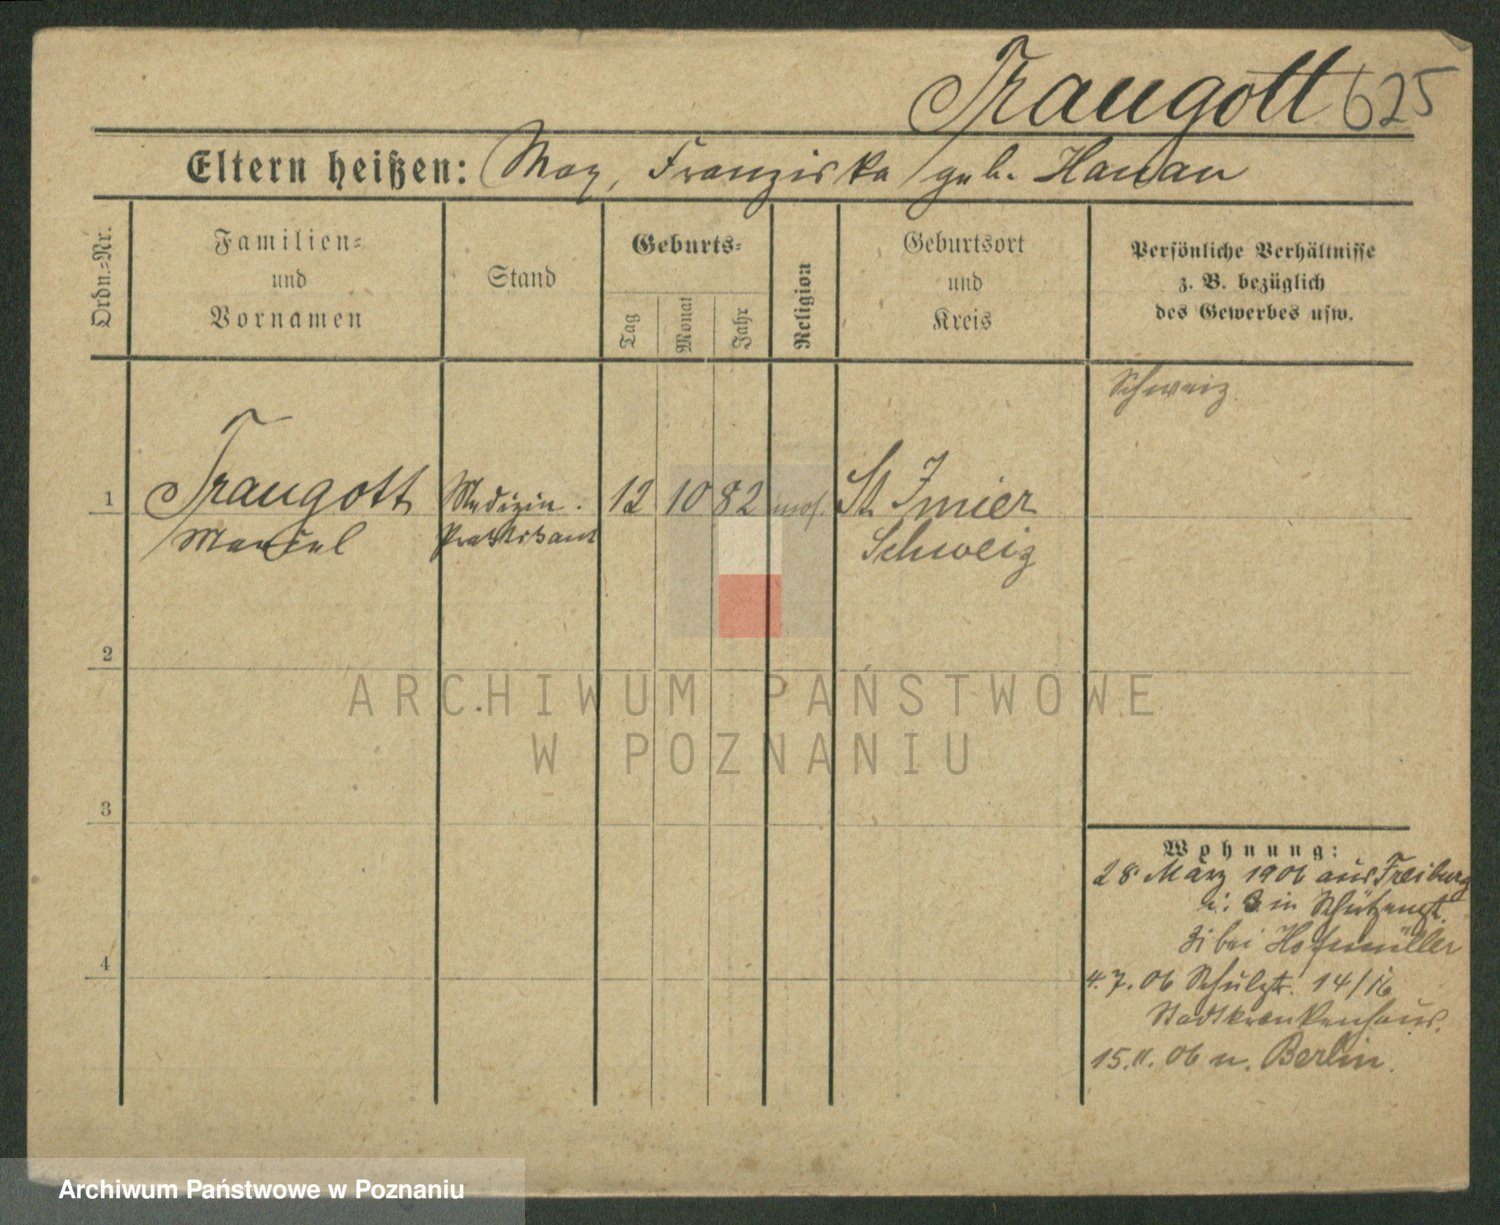 Traugott 625
Eltern heißen: Max, Franziska geb. Hanau
Ordn.-Nr.
Familien-
und
Vornamen
Stand
Geburts-
Tag
Monat
Jahr
Religion
Geburtsort
und
Kreis
Persönliche Verhältnisse
z. B. bezüglich
des Gewerbes usw.
Schweiz
1 Traugott Medizin. 12 10 82 mos. St Imier
Marcel Praktikant Schweiz
2
3
4
ARCHIWUM PAŃSTWOWE
W POZNANIU
Wohnung:
28 März 1906 aus Freiburg
i. B in Schützenstr.
bei Hofmüller
4.7.06 Schulstr. 14/16
Stadtkrankenhaus.
15.11.06 n. Berlin.
Archiwum Państwowe w Poznaniu